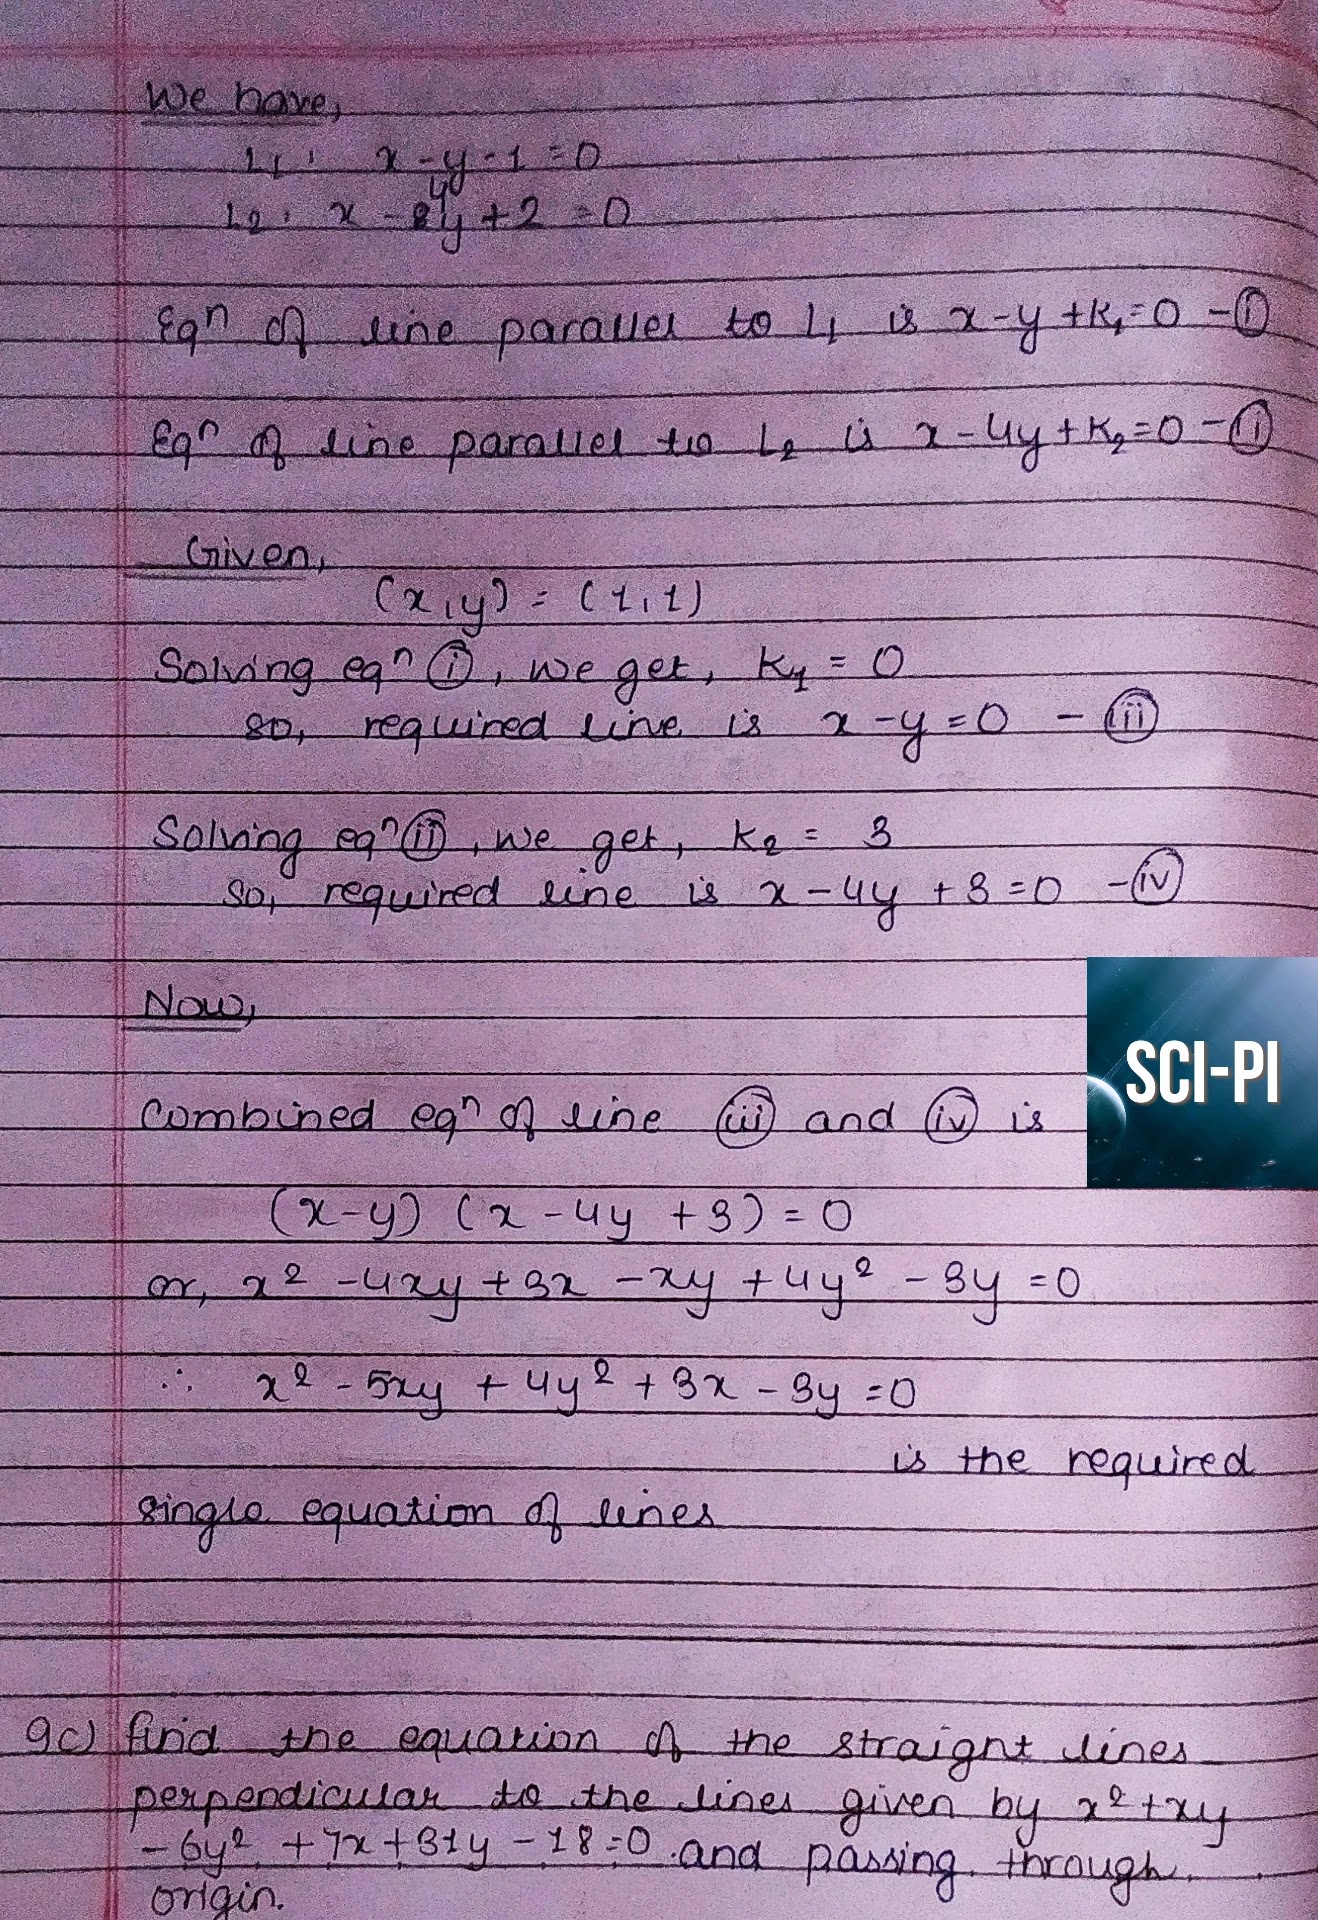 We have,
L1: x - y - 1 = 0
L2: x - 4y + 2 = 0
Eqn of line parallel to L1 is x - y + K1 = 0 - (i)
Eqn of line parallel to L2 is x - 4y + K2 = 0 - (i)
Given,
(x, y) = (1, 1)
Solving eqn (i), we get, K1 = 0
so, required line is x - y = 0 - (iii)
Solving eqn (ii), we get, K2 = 3
So, required line is x - 4y + 3 = 0 - (iv)
Now,
Combined eqn of line (iii) and (iv) is
SCI-PI
(x - y) (x - 4y + 3) = 0
or, x² - 4xy + 3x - xy + 4y² - 3y = 0
∴ x² - 5xy + 4y² + 3x - 3y = 0
is the required
single equation of lines
9c) find the equation of the straight lines
perpendicular to the lines given by x² + xy
- 6y² + 7x + 31y - 18 = 0 and passing through
origin.